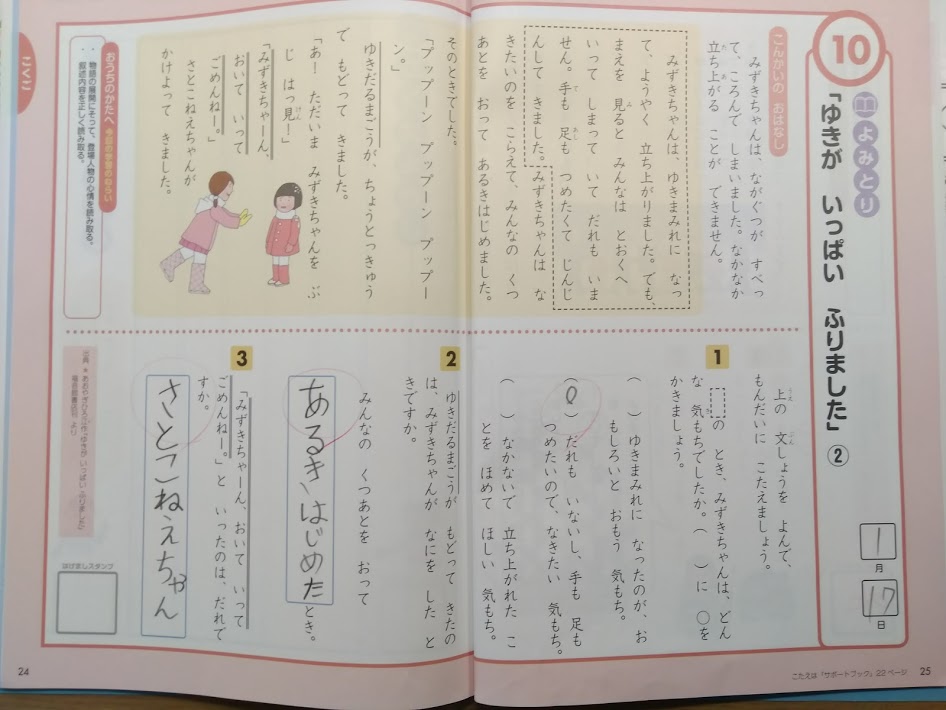 10
よみとり
「ゆきが いっぱい ふりました」②
1月
17日
こんかいの おはなし
みずきちゃんは、ながぐつが すべっ
て、ころんで しまいました。なかなか
立ち上がる ことが できません。
みずきちゃんは、ゆきまみれに なっ
て、ようやく 立ち上がりました。でも、
まえを 見ると みんなは とおくへ
いって しまって いて だれも いま
せん。手も 足も つめたくて じんじ
んして きました。みずきちゃんは な
きたいのを こらえて、みんなの くつ
あとを おって あるきはじめました。
そのときでした。
「プップーン プップーン プップー
ン。」
ゆきだるまごうが、ちょうとっきゅう
で もどって きました。
「あ! ただいま みずきちゃんを ぶ
じ はっ見!」
「みずきちゃーん、
おいて いって
ごめんねー。」
さとこねえちゃんが
かけよって きました。
おうちのかたへ 今回の学習のねらい
・物語の展開にそって、登場人物の心情を読み取る。
・叙述内容を正しく読み取る。
こくご
上の 文しょうを よんで、
もんだいに こたえましょう。
1
の とき、みずきちゃんは、どん
な 気もちでしたか。( )に ○を
かきましょう。
( ) ゆきまみれに なったのが、お
もしろいと おもう 気もち。
(○) だれも いないし、手も 足も
つめたいので、なきたい 気もち。
( ) なかないで 立ち上がれた こ
とを ほめて ほしい 気もち。
2
ゆきだるまごうが もどって きたの
は、みずきちゃんが なにを した と
きですか。
みんなの くつあとを おって
あるきはじめた とき。
3
「みずきちゃーん、おいて いって
ごめんねー。」と いったのは、だれで
すか。
さとこねえちゃん
はげましスタンプ
24
こたえは「サポートブック」22ページ
25